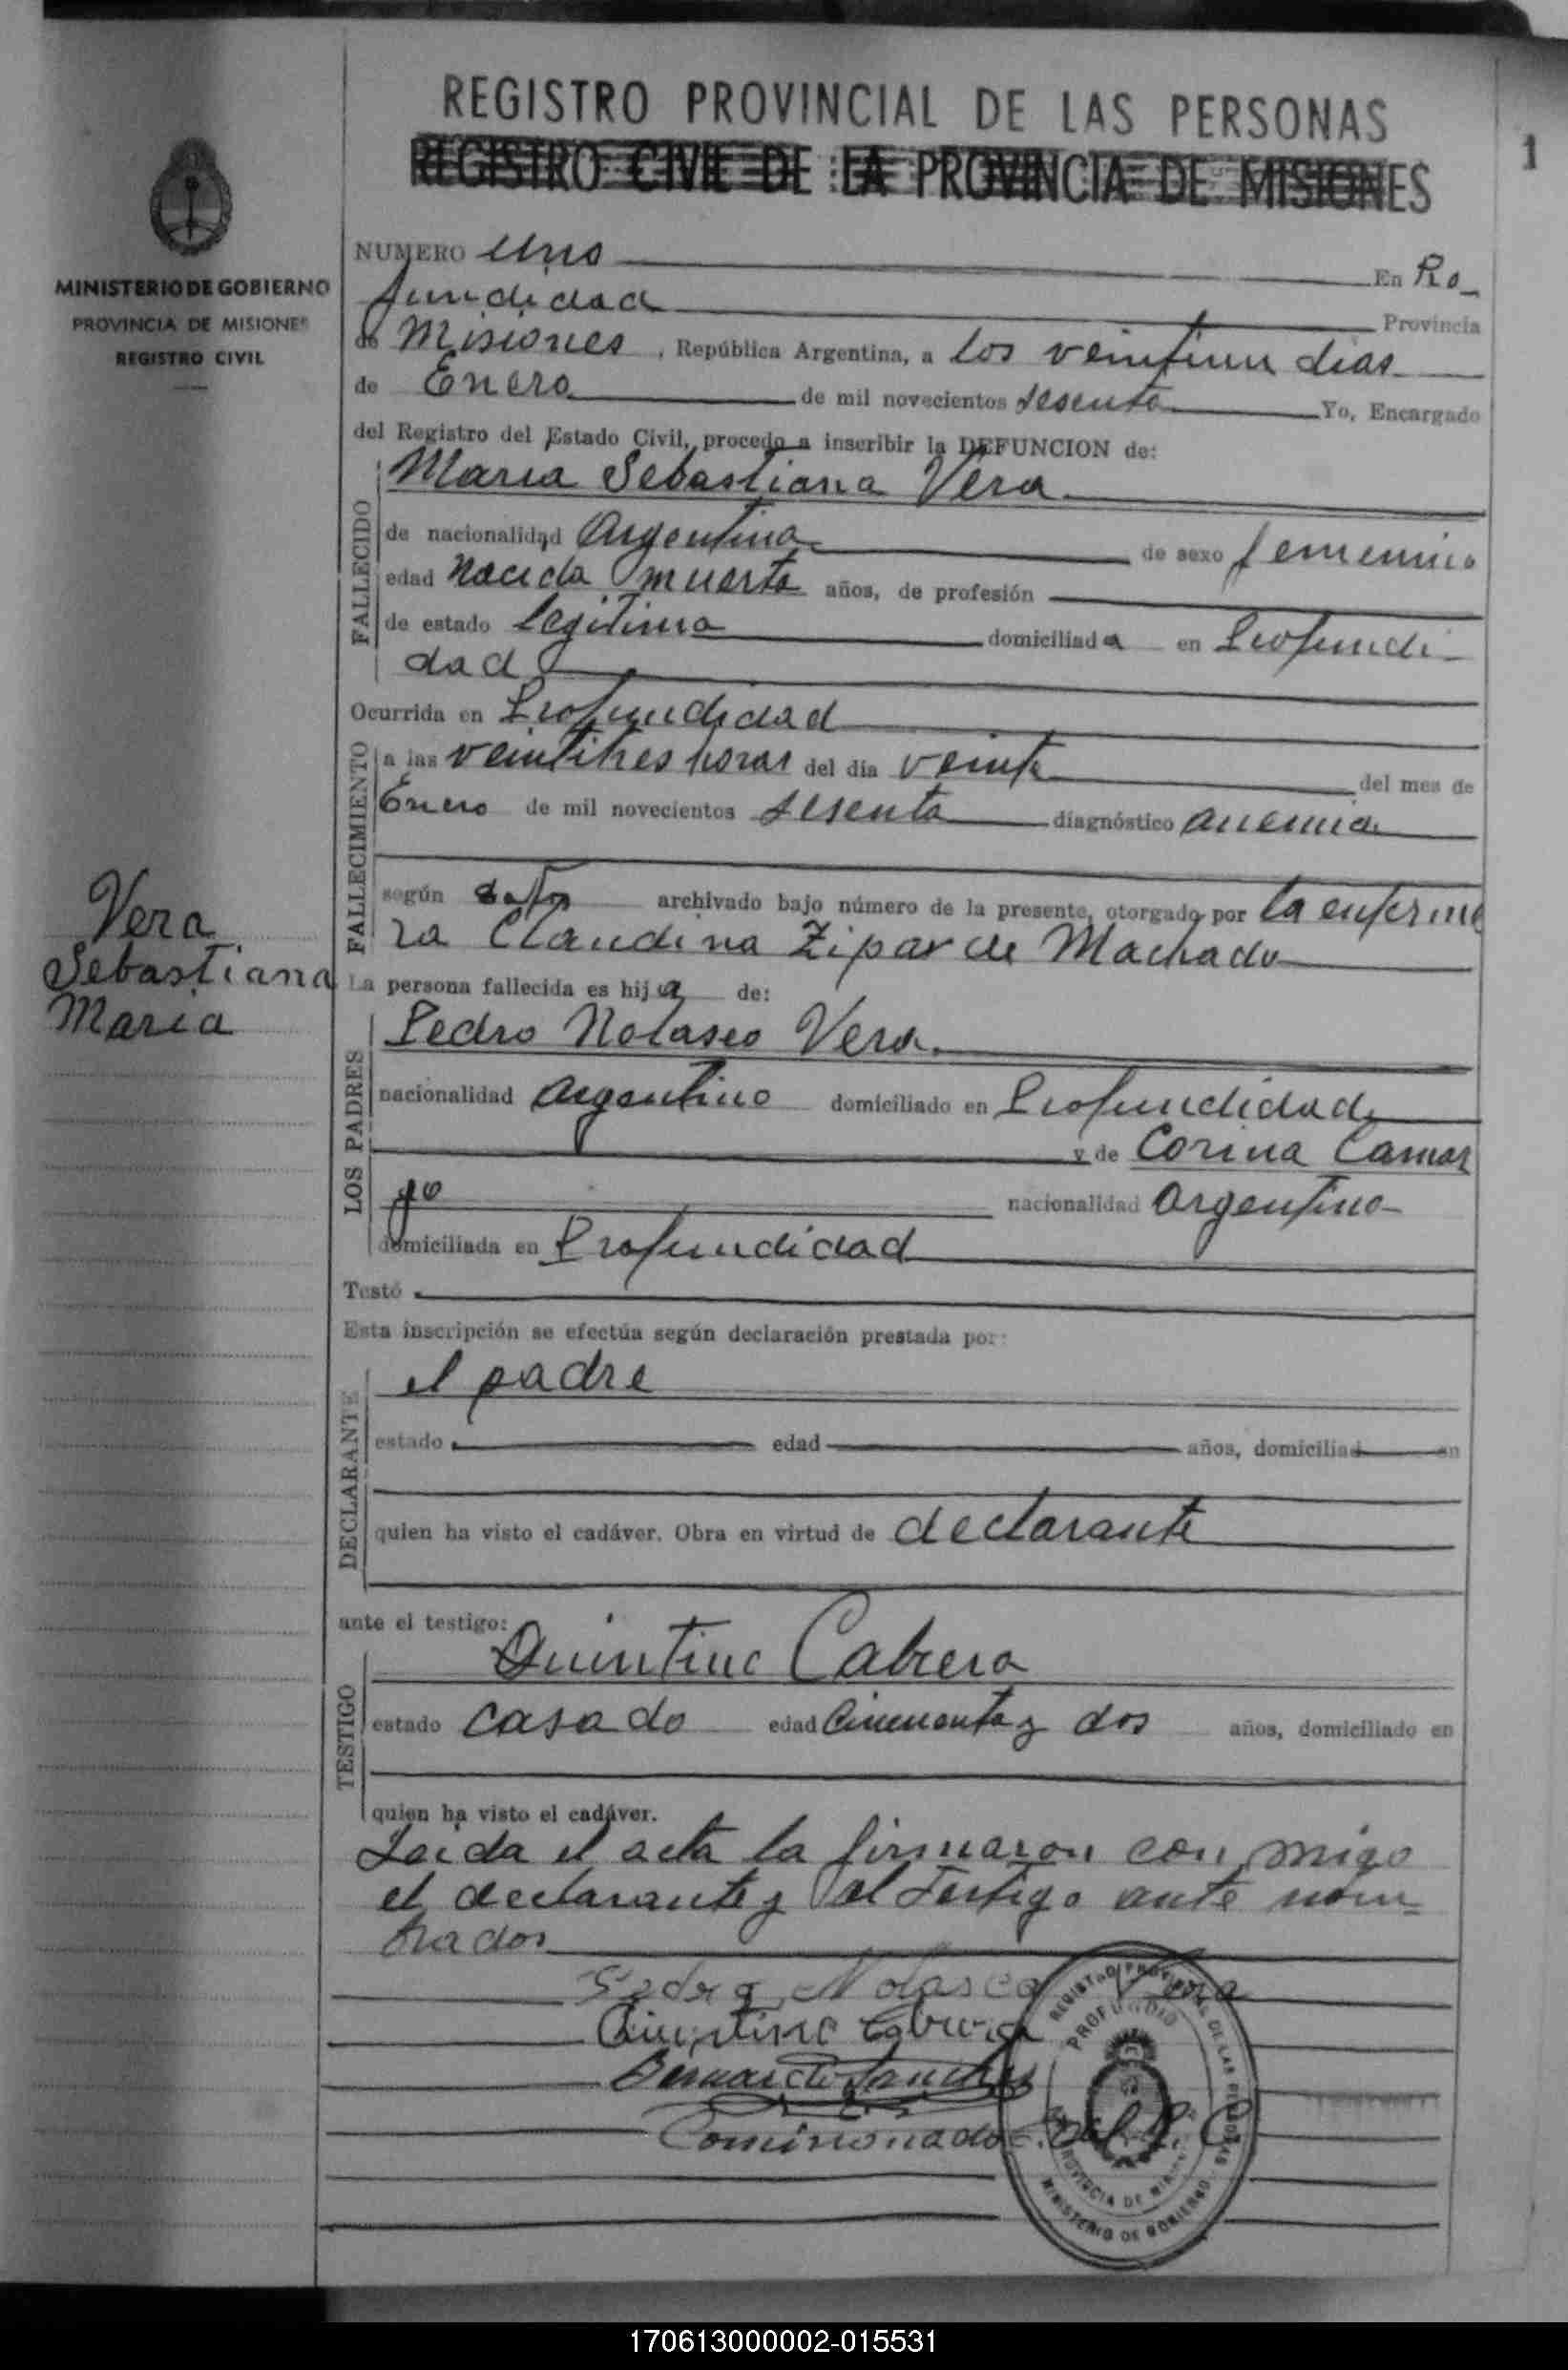 REGISTRO PROVINCIAL DE LAS PERSONAS
REGISTRO CIVIL DE LA PROVINCIA DE MISIONES
1
MINISTERIO DE GOBIERNO
PROVINCIA DE MISIONES
REGISTRO CIVIL
Vera
Sebastiana
Maria
NUMERO uno En Ro_
fundidad Provincia
de Misiones, República Argentina, a los veintiun dias
de Enero de mil novecientos sesenta Yo, Encargado
del Registro del Estado Civil, procedo a inscribir la DEFUNCION de:
FALLECIDO
Maria Sebastiana Vera
de nacionalidad Argentina de sexo femenino
edad Nacida muerta años, de profesión
de estado legitima domiciliada en Profundi
dad
Ocurrida en Profundidad
FALLECIMIENTO
a las veintitres horas del día veinte del mes de
Enero de mil novecientos sesenta diagnóstico anemia
según archivado bajo número de la presente, otorgado por la enferme
ra Claudina Zipar de Machado
La persona fallecida es hija de:
LOS PADRES
Pedro Nolasco Vera
nacionalidad argentino domiciliado en Profundidad
y de Corina Camar
go nacionalidad argentino
domiciliada en Profundidad
Testó
Esta inscripción se efectúa según declaración prestada por:
DECLARANTE
el padre
estado edad años, domiciliad en
quien ha visto el cadáver. Obra en virtud de declarante
ante el testigo:
TESTIGO
Quintino Cabrera
estado casado edad Cincuenta y dos años, domiciliado en
quien ha visto el cadáver.
Leida el acta la firmaron con migo
el declarante y el Testigo ante nom_
brados
Pedro Nolasco Vera
Quintino Cabrera
Bernardo Sanchez
Comisionado
REGISTRO PROVINCIAL DE LAS PERSONAS
PROFUNDID
PROVINCIA DE MISIONES
MINISTERIO DE GOBIERNO
170613000002-015531